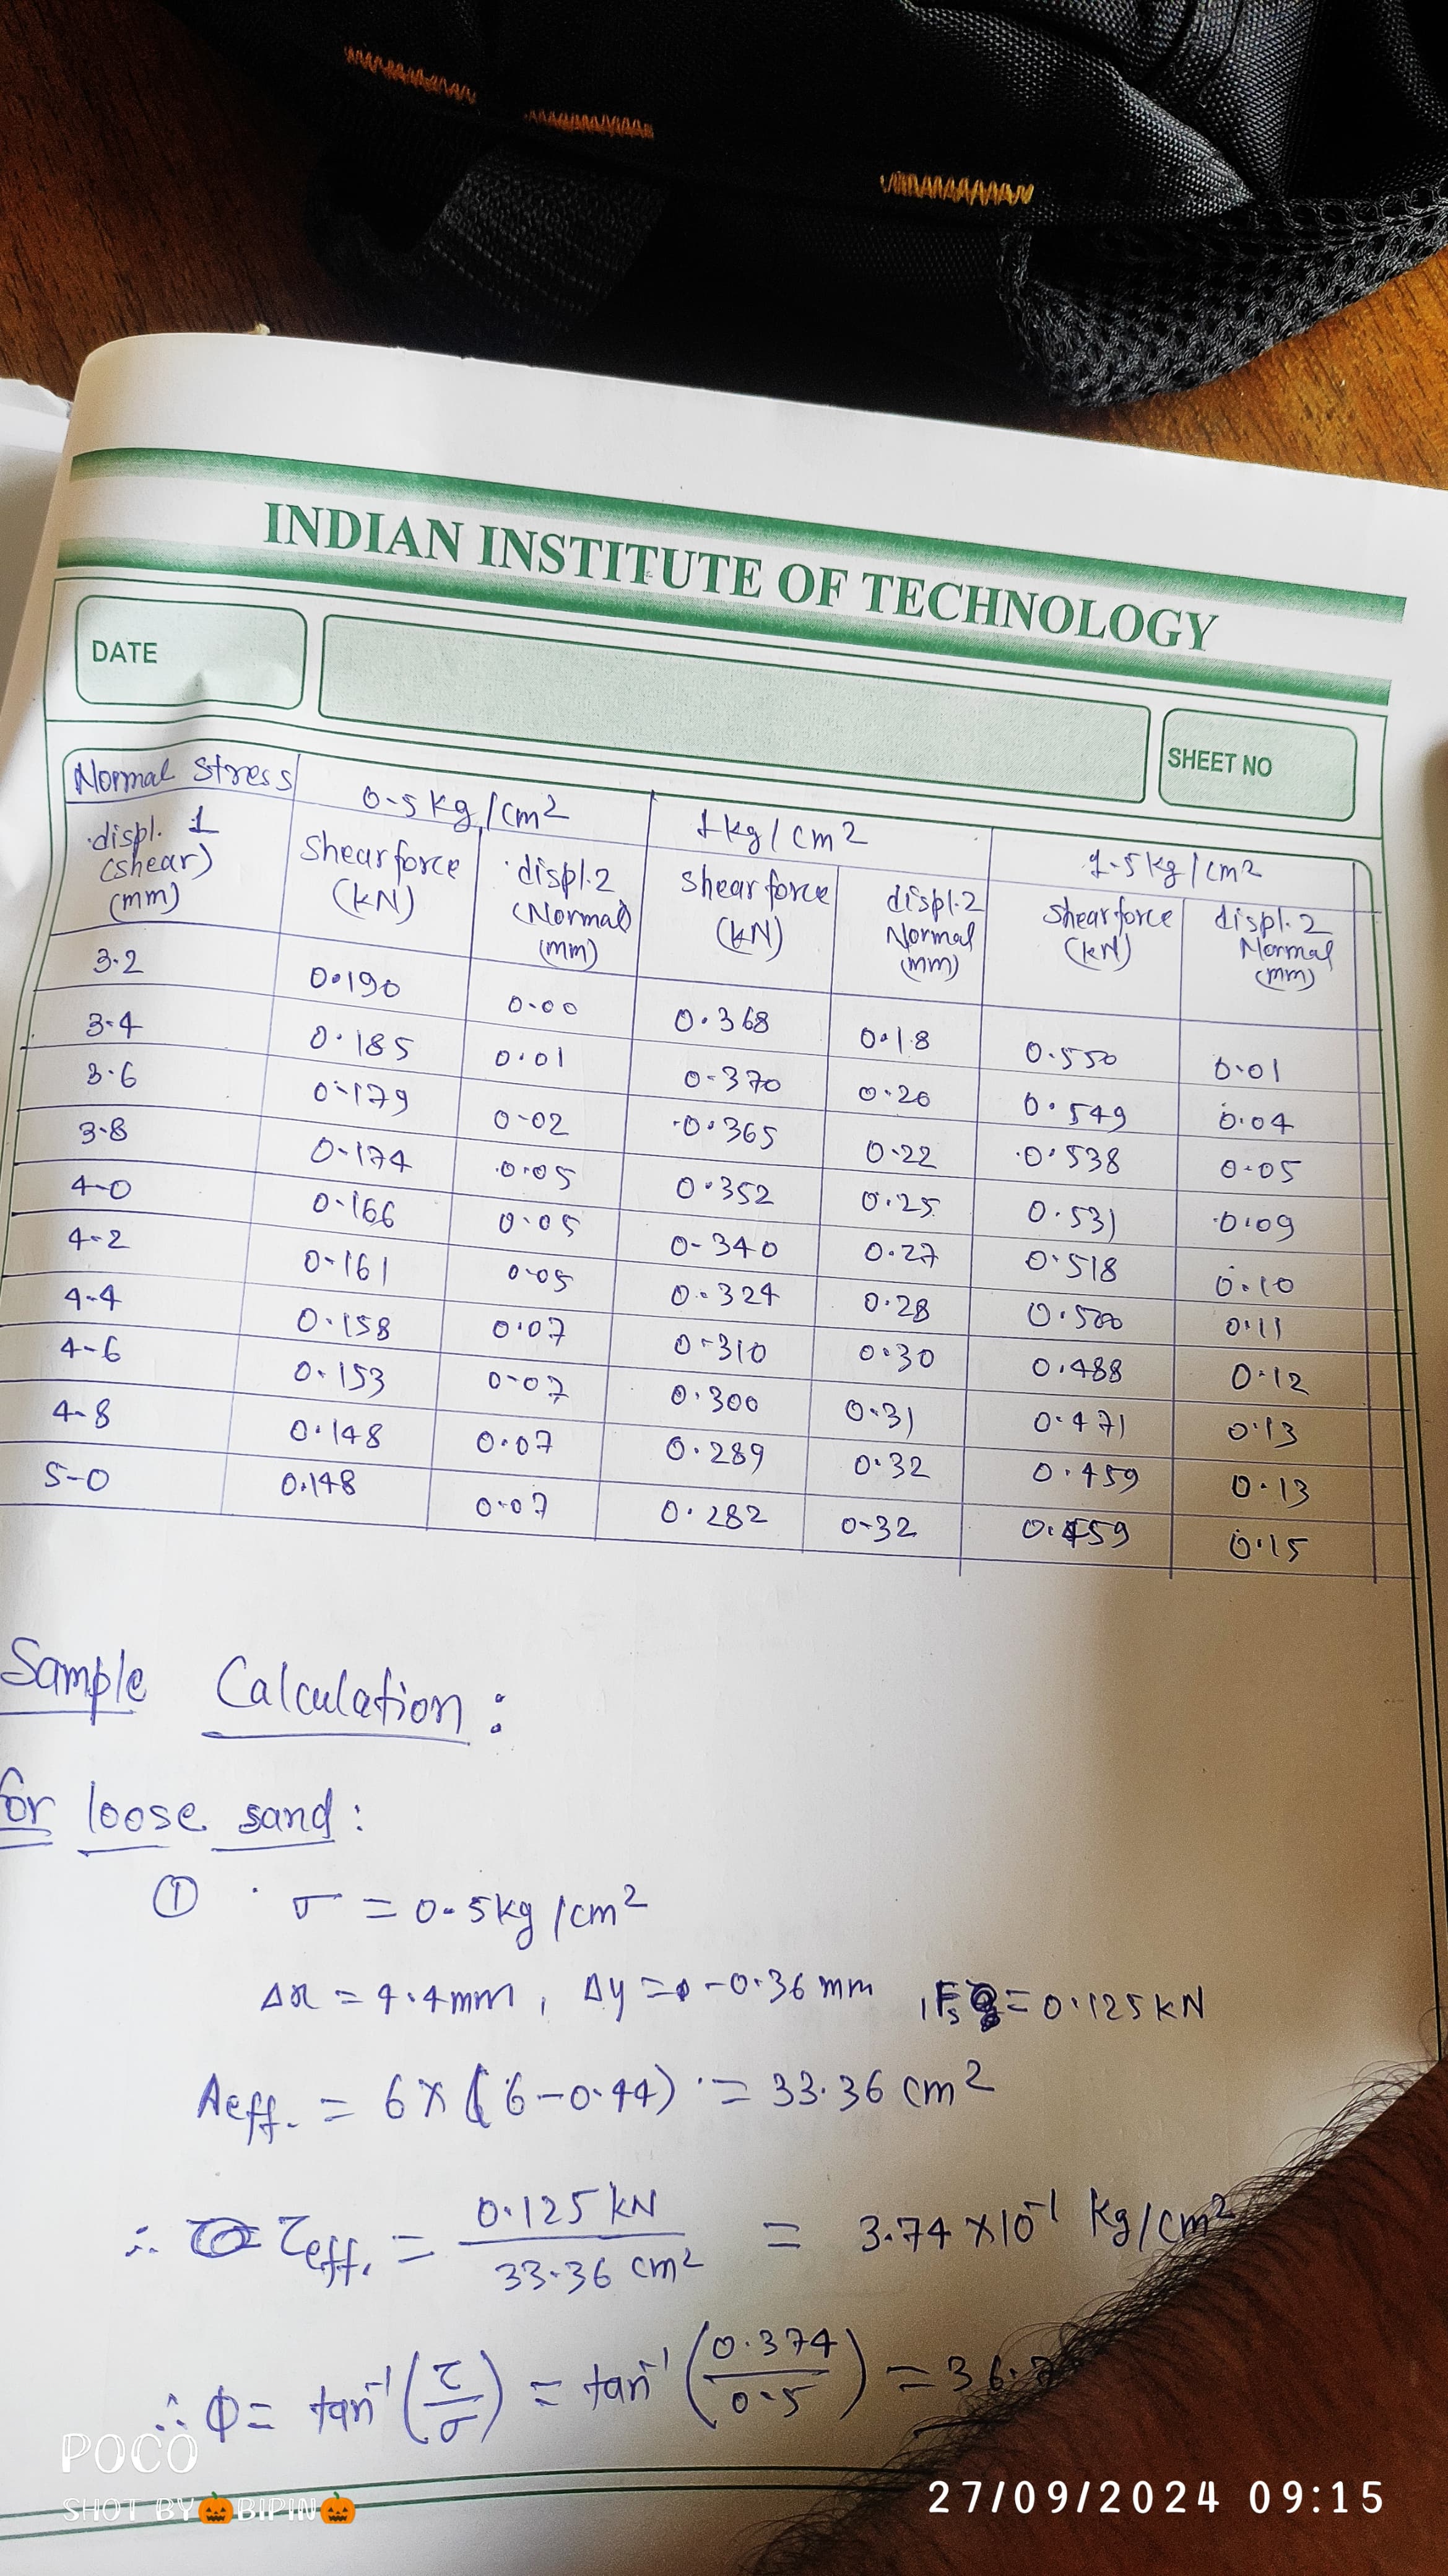 INDIAN INSTITUTE OF TECHNOLOGY
DATE
SHEET NO
Normal Stress 0-5 kg/cm2 1 kg/cm2 1-5 kg/cm2
displ. 1 (shear) (mm) Shear force (kN) displ.2 (Normal) (mm) shear force (kN) displ.2 Normal (mm) Shear force (kN) displ.2 Normal (mm)
3.2 0.190 0.00 0.368 0.18 0.550 0.01
3.4 0.185 0.01 0.370 0.20 0.549 0.04
3.6 0.179 0.02 0.365 0.22 0.538 0.05
3.8 0.174 0.05 0.352 0.25 0.531 0.09
4.0 0.166 0.05 0.340 0.27 0.518 0.10
4.2 0.161 0.05 0.324 0.28 0.500 0.11
4.4 0.158 0.07 0.310 0.30 0.488 0.12
4.6 0.153 0.07 0.300 0.31 0.471 0.13
4.8 0.148 0.07 0.289 0.32 0.459 0.13
5.0 0.148 0.07 0.282 0.32 0.459 0.15
Sample Calculation :
for loose sand :
① σ = 0.5 kg/cm2
Δx = 4.4mm, Δy = -0.36 mm, Fs = 0.125 kN
Aeff. = 6 x (6-0.44) = 33.36 cm2
∴ τeff. = 0.125 kN / 33.36 cm2 = 3.74 x 10^-1 kg/cm2
∴ φ = tan-1 (τ/σ) = tan-1 (0.374/0.5) = 36.
POCO
SHOT BY🎃BIPIN🎃
27/09/2024 09:15